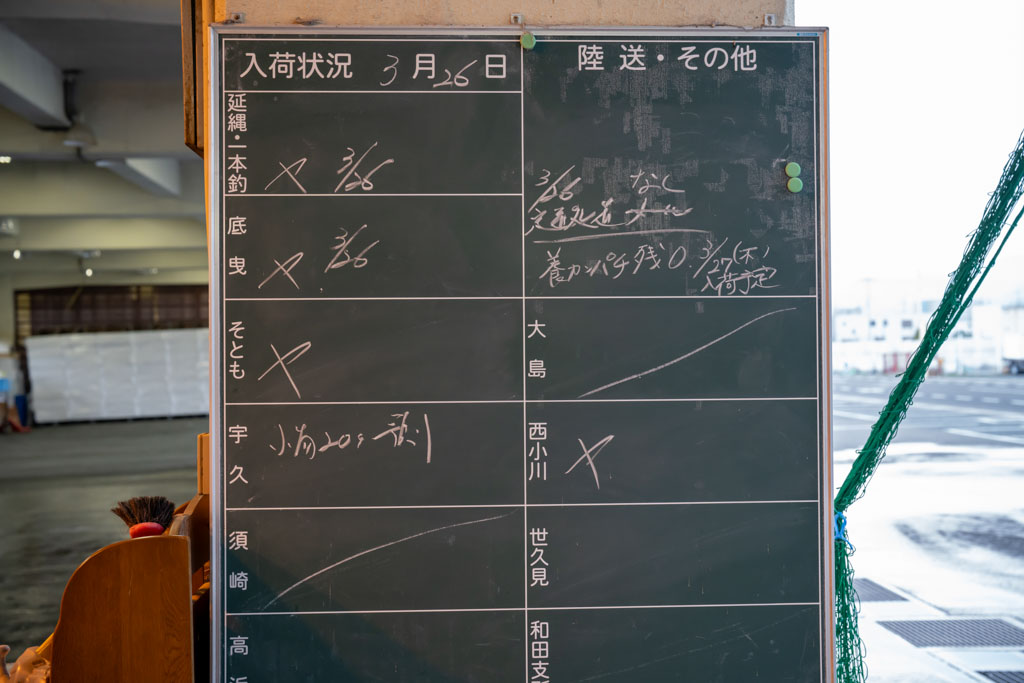 入荷状況 3月26日
延縄・一本釣 ヤ 3/26
底曳 ヤ 3/26
そとも ヤ
宇久
須崎
高浜
陸送・その他
3/26 なし
養カンパチ残0. 3/27(木)
入荷予定
大島
西小川 ヤ
世久見
和田支所